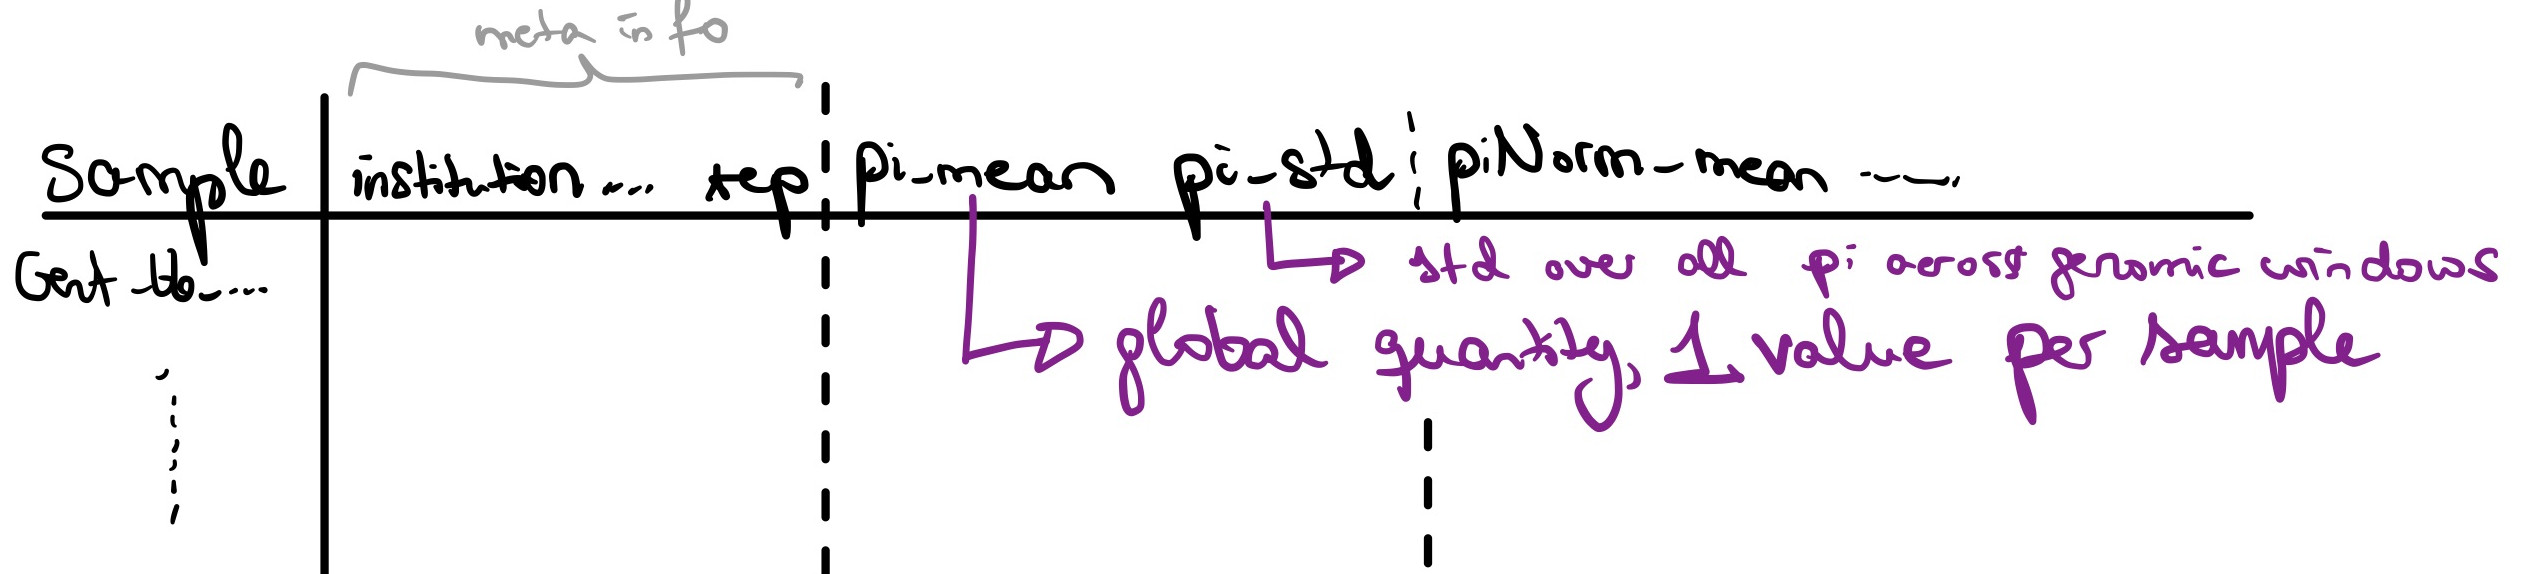 meta info
Sample institution... rep pi-mean pi-std piNorm-mean ----.
std over all pi across genomic windows
Gent
global quantity, 1 value per sample